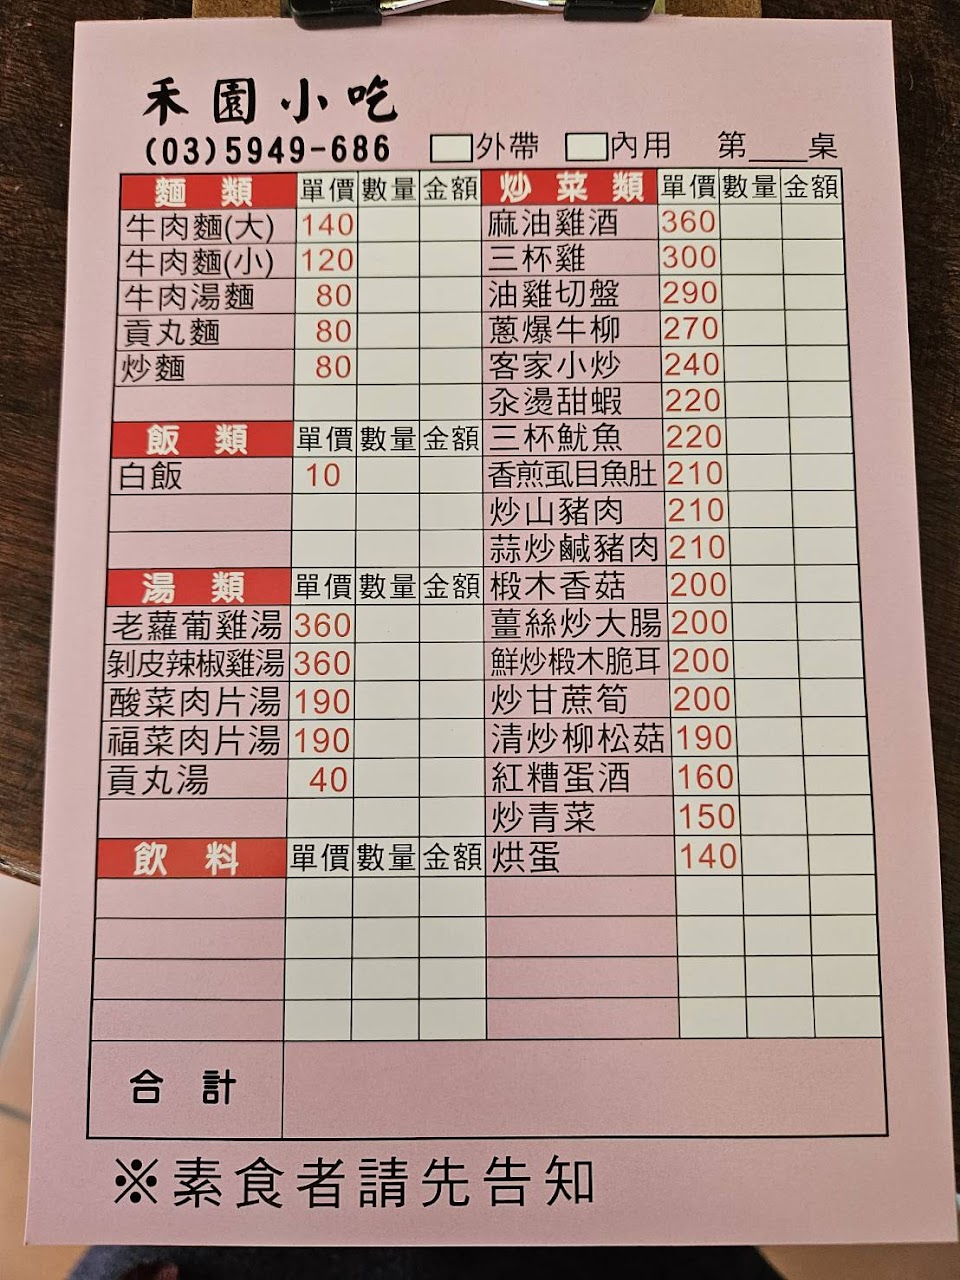 禾園小吃
(03)5949-686 外帶 內用 第___桌
麵類 單價 數量 金額
牛肉麵(大) 140
牛肉麵(小) 120
牛肉湯麵 80
貢丸麵 80
炒麵 80
飯類 單價 數量 金額
白飯 10
湯類 單價 數量 金額
老蘿蔔雞湯 360
剝皮辣椒雞湯 360
酸菜肉片湯 190
福菜肉片湯 190
貢丸湯 40
飲料 單價 數量 金額
炒菜類 單價 數量 金額
麻油雞酒 360
三杯雞 300
油雞切盤 290
蔥爆牛柳 270
客家小炒 240
汆燙甜蝦 220
三杯魷魚 220
香煎虱目魚肚 210
炒山豬肉 210
蒜炒鹹豬肉 210
椴木香菇 200
薑絲炒大腸 200
鮮炒椴木脆耳 200
炒甘蔗筍 200
清炒柳松菇 190
紅糟蛋酒 160
炒青菜 150
烘蛋 140
合計
※素食者請先告知